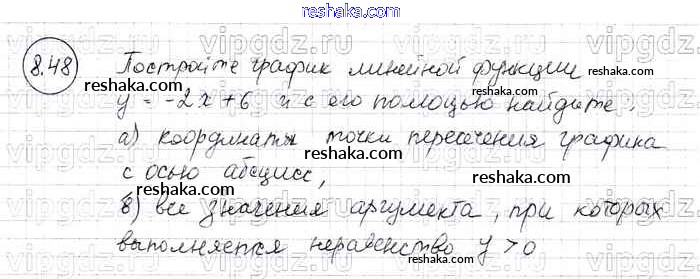 reshaka.com
8.48 Постройте график линейной функции
y = -2x+6 и с его помощью найдите:
а) координаты точки пересечения графика
с осью абсцисс,
в) все значения аргумента, при которых
выполняется неравенство y > 0
reshaka.com
reshaka.com
reshaka.com
reshaka.com
reshaka.com
reshaka.com
vipgdz.com
vipgdz.com